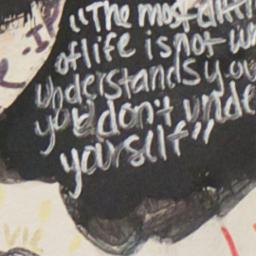 "The most diffi
of life is not w
understands you
you don't unde
yourself"